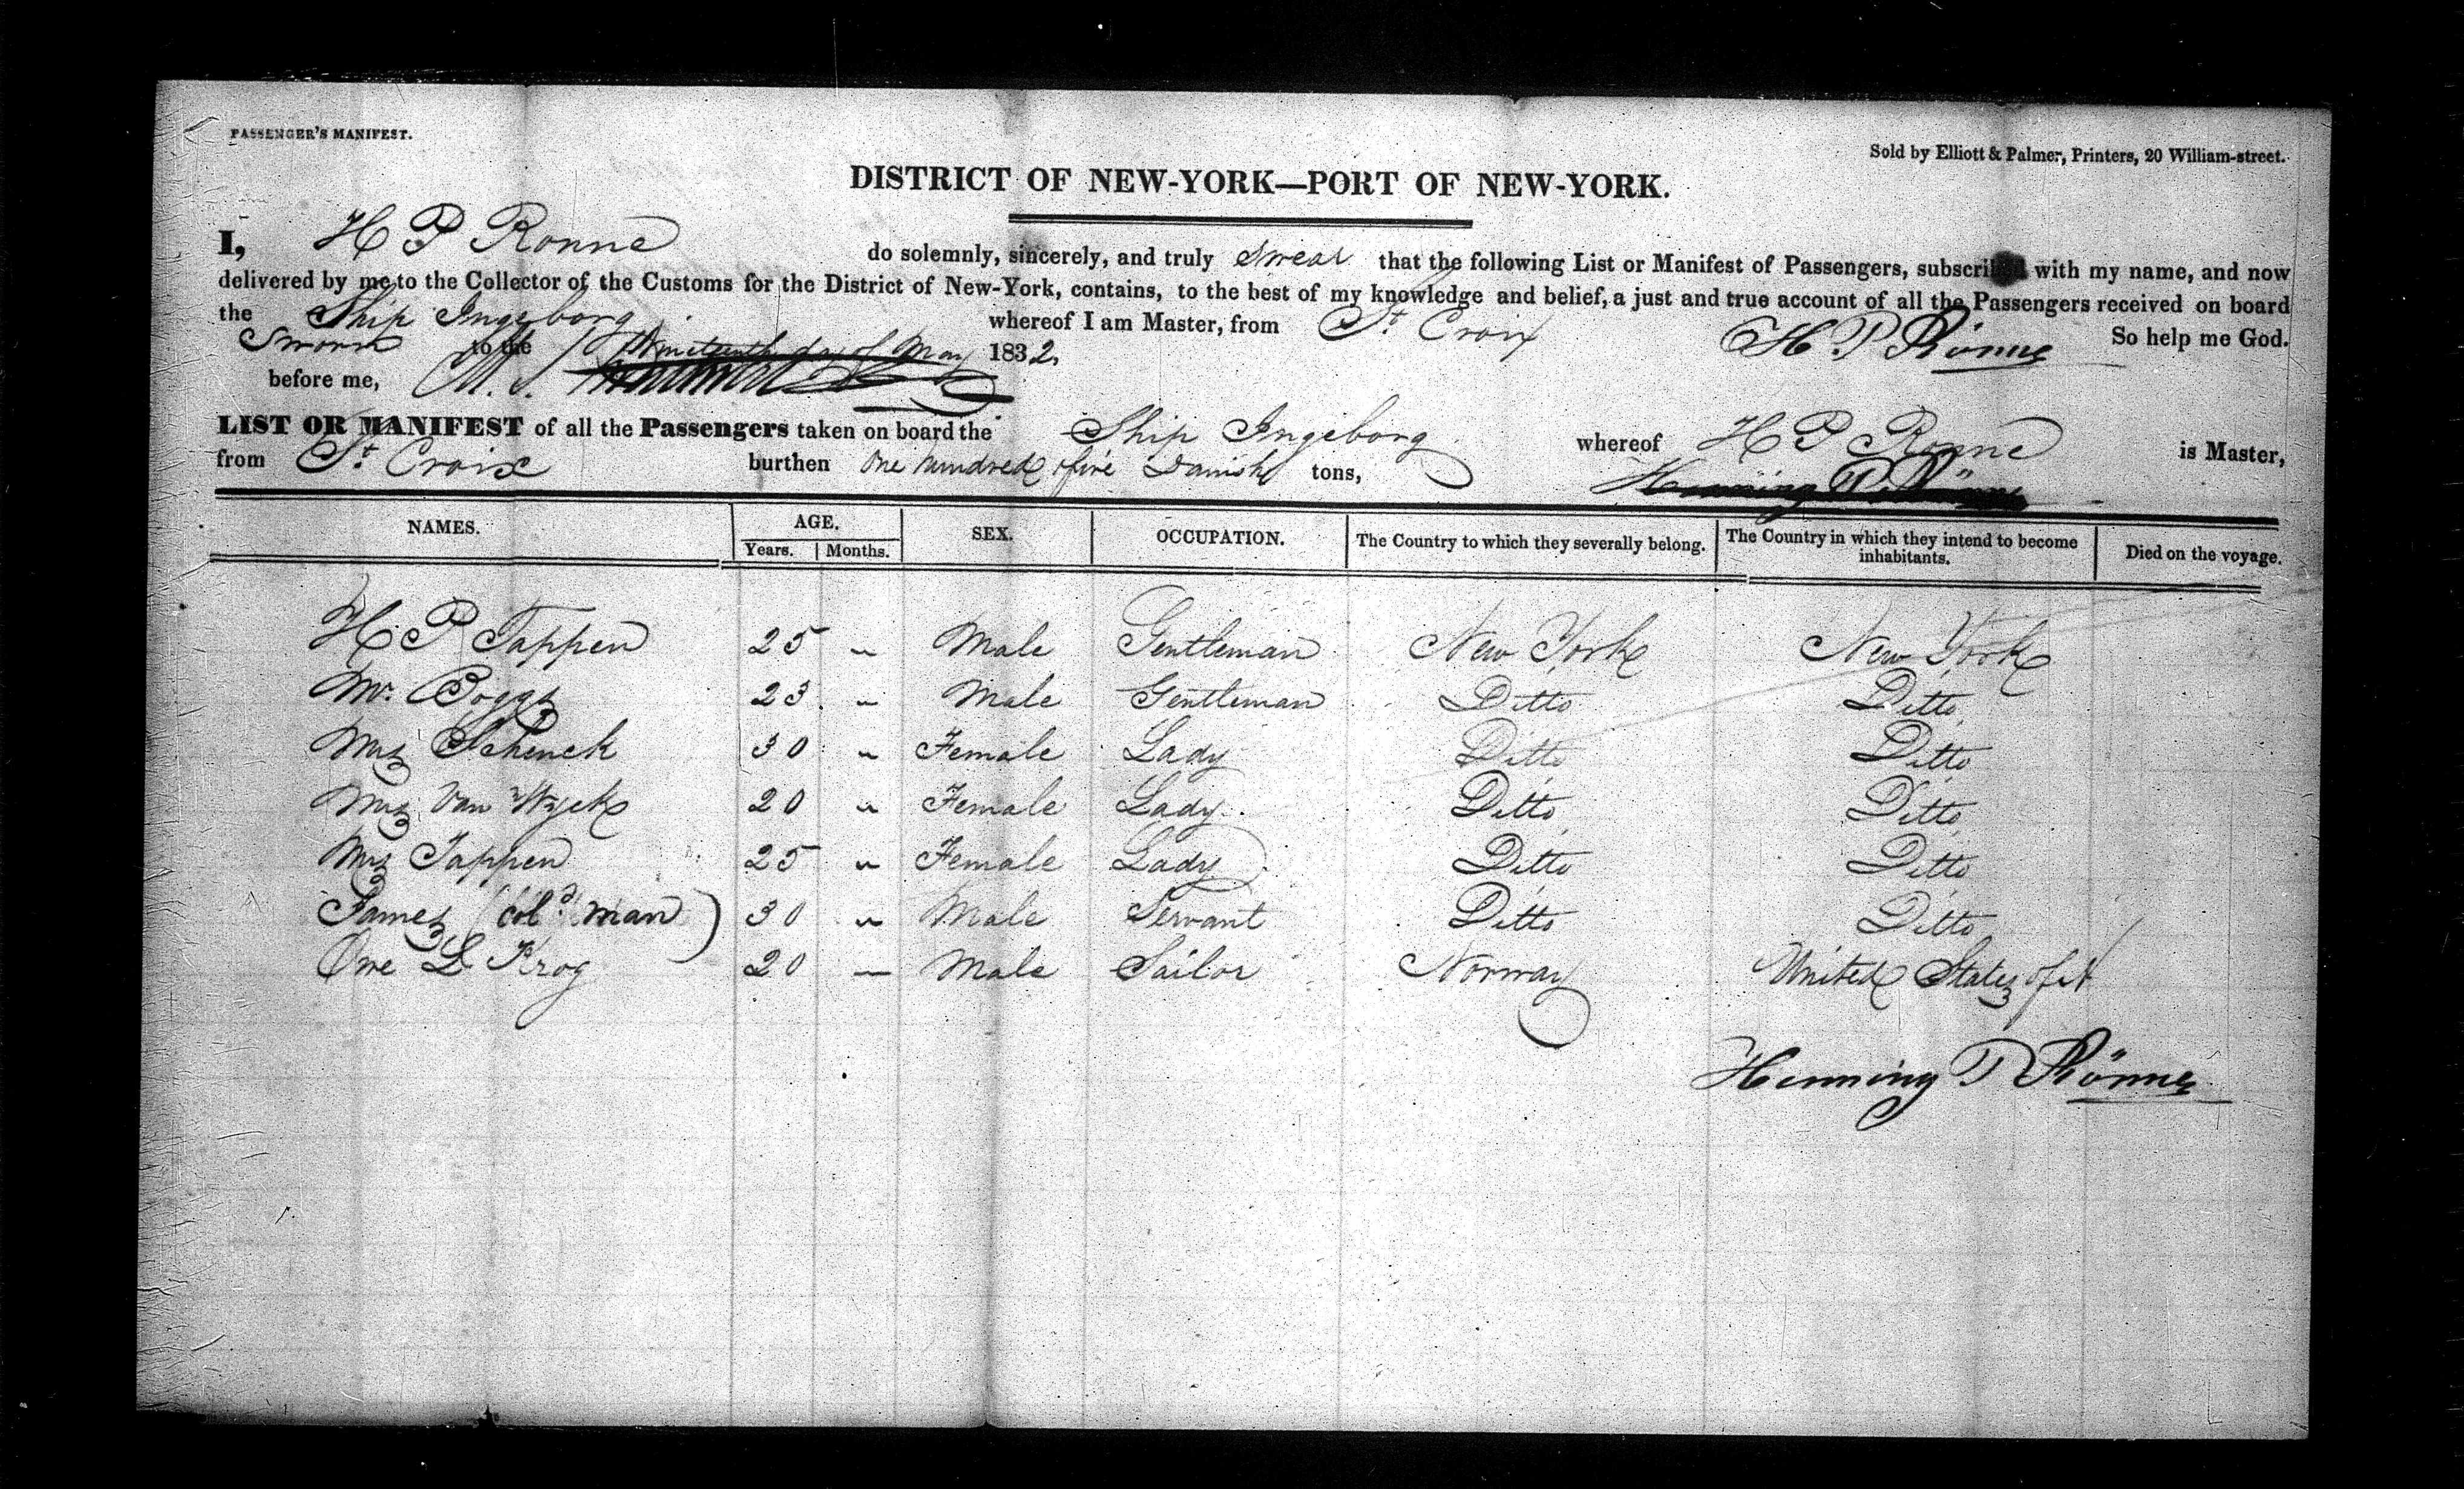 PASSENGER'S MANIFEST.
Sold by Elliott & Palmer, Printers, 20 William-street.
DISTRICT OF NEW-YORK—PORT OF NEW-YORK.
I, H P Ronne do solemnly, sincerely, and truly Swear that the following List or Manifest of Passengers, subscribed with my name, and now
delivered by me to the Collector of the Customs for the District of New-York, contains, to the best of my knowledge and belief, a just and true account of all the Passengers received on board
the Ship Ingeborg whereof I am Master, from St Croix H. P. Rönne So help me God.
Sworn to the Nineteenth day of May 1832.
before me,
LIST OR MANIFEST of all the Passengers taken on board the Ship Ingeborg whereof H P Ronne is Master,
from St Croix burthen One hundred & five Danish tons,
Henning P Rönne
NAMES. AGE. SEX. OCCUPATION. The Country to which they severally belong. The Country in which they intend to become inhabitants. Died on the voyage.
Years. Months.
H. P Tappen 25 " Male Gentleman New York New York
Mr. Boggs 23 " Male Gentleman Ditto Ditto
Mrs Schenck 30 " Female Lady Ditto Ditto
Mrs Van Wyck 20 " Female Lady Ditto Ditto
Mrs Tappen 25 " Female Lady Ditto Ditto
James (Cold man) 30 " Male Servant Ditto Ditto
One L Krog 20 — Male Sailor Norway United States of A
Henning P Rönne